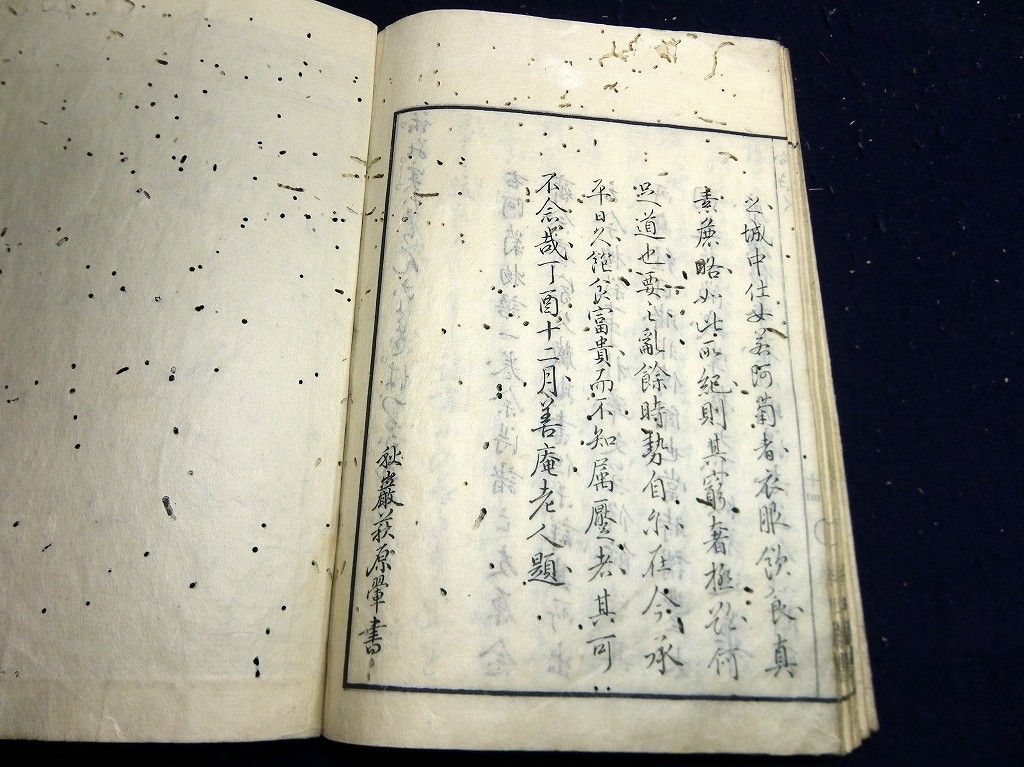 之城中仕女若阿菊者衣服飲食真
素麁略如此所紀則其窮奢極欲何
足道也要之亂餘時勢自尓在今承
平日久飽食富貴而不知属壓者其可
不念哉丁酉十二月善庵老人題
秋巖萩原翬書